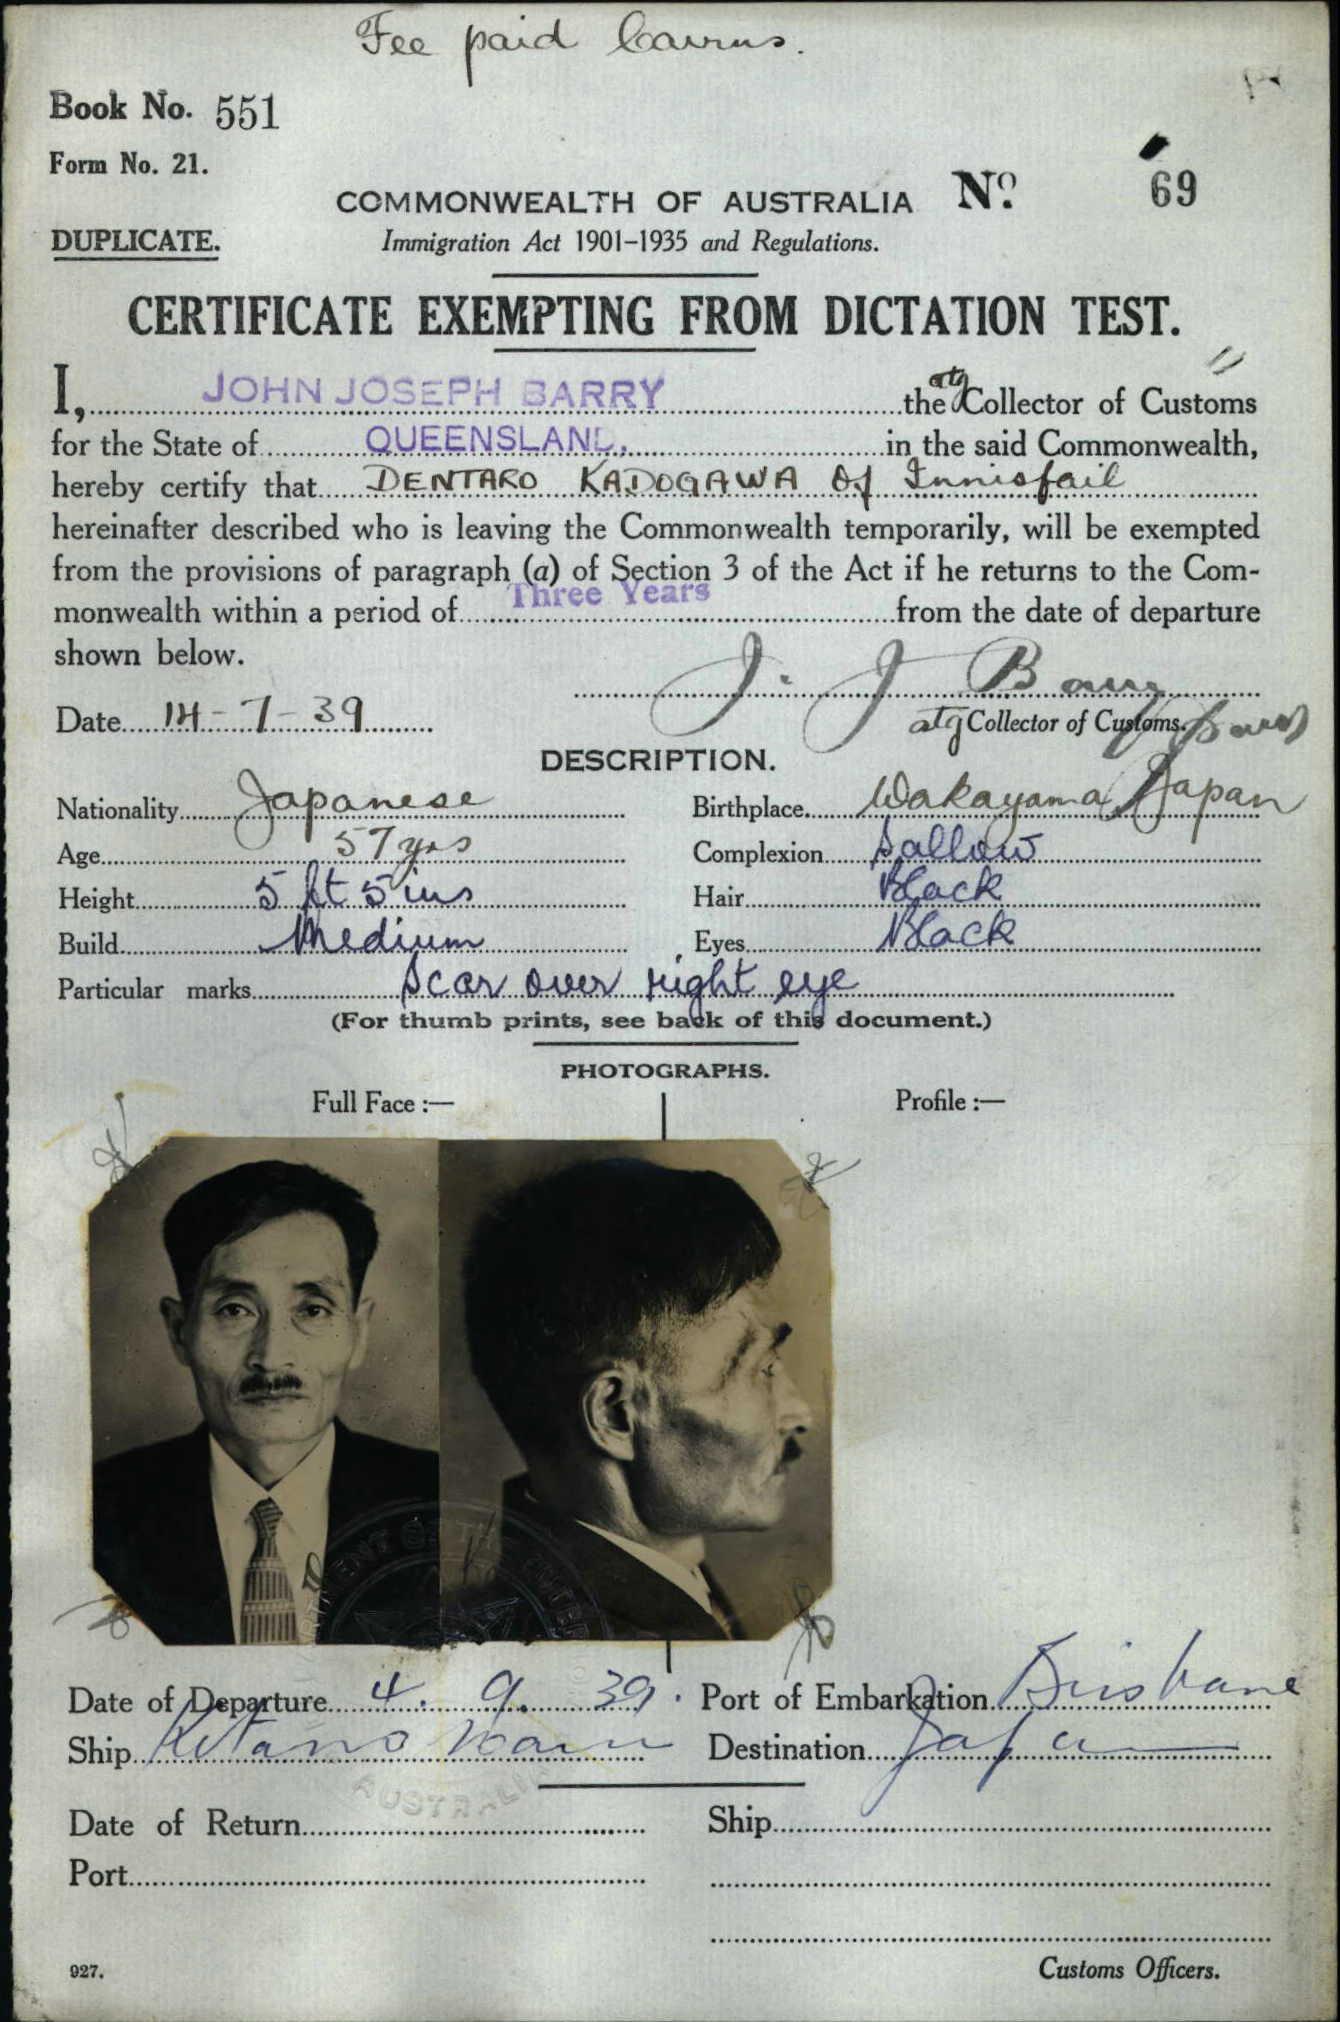 Fee paid Cairns.
Book No. 551
Form No. 21.
COMMONWEALTH OF AUSTRALIA No. 69
DUPLICATE.
Immigration Act 1901-1935 and Regulations.
CERTIFICATE EXEMPTING FROM DICTATION TEST.
I, JOHN JOSEPH BARRY the atg Collector of Customs
for the State of QUEENSLAND. in the said Commonwealth,
hereby certify that DENTARO KADOGAWA of Innisfail
hereinafter described who is leaving the Commonwealth temporarily, will be exempted
from the provisions of paragraph (a) of Section 3 of the Act if he returns to the Com-
monwealth within a period of Three Years from the date of departure
shown below.
J. J Barry
Date 14-7-39
atg Collector of Customs.
DESCRIPTION.
Nationality Japanese Birthplace Wakayama Japan
Age 57 yrs Complexion Sallow
Height 5 ft 5 ins Hair Black
Build Medium Eyes Black
Particular marks Scar over right eye
(For thumb prints, see back of this document.)
PHOTOGRAPHS.
Full Face :— Profile :—
Date of Departure 4. 9. 39. Port of Embarkation Brisbane
Ship Kitano Maru Destination Japan
AUSTRALIA
Date of Return Ship
Port
927. Customs Officers.